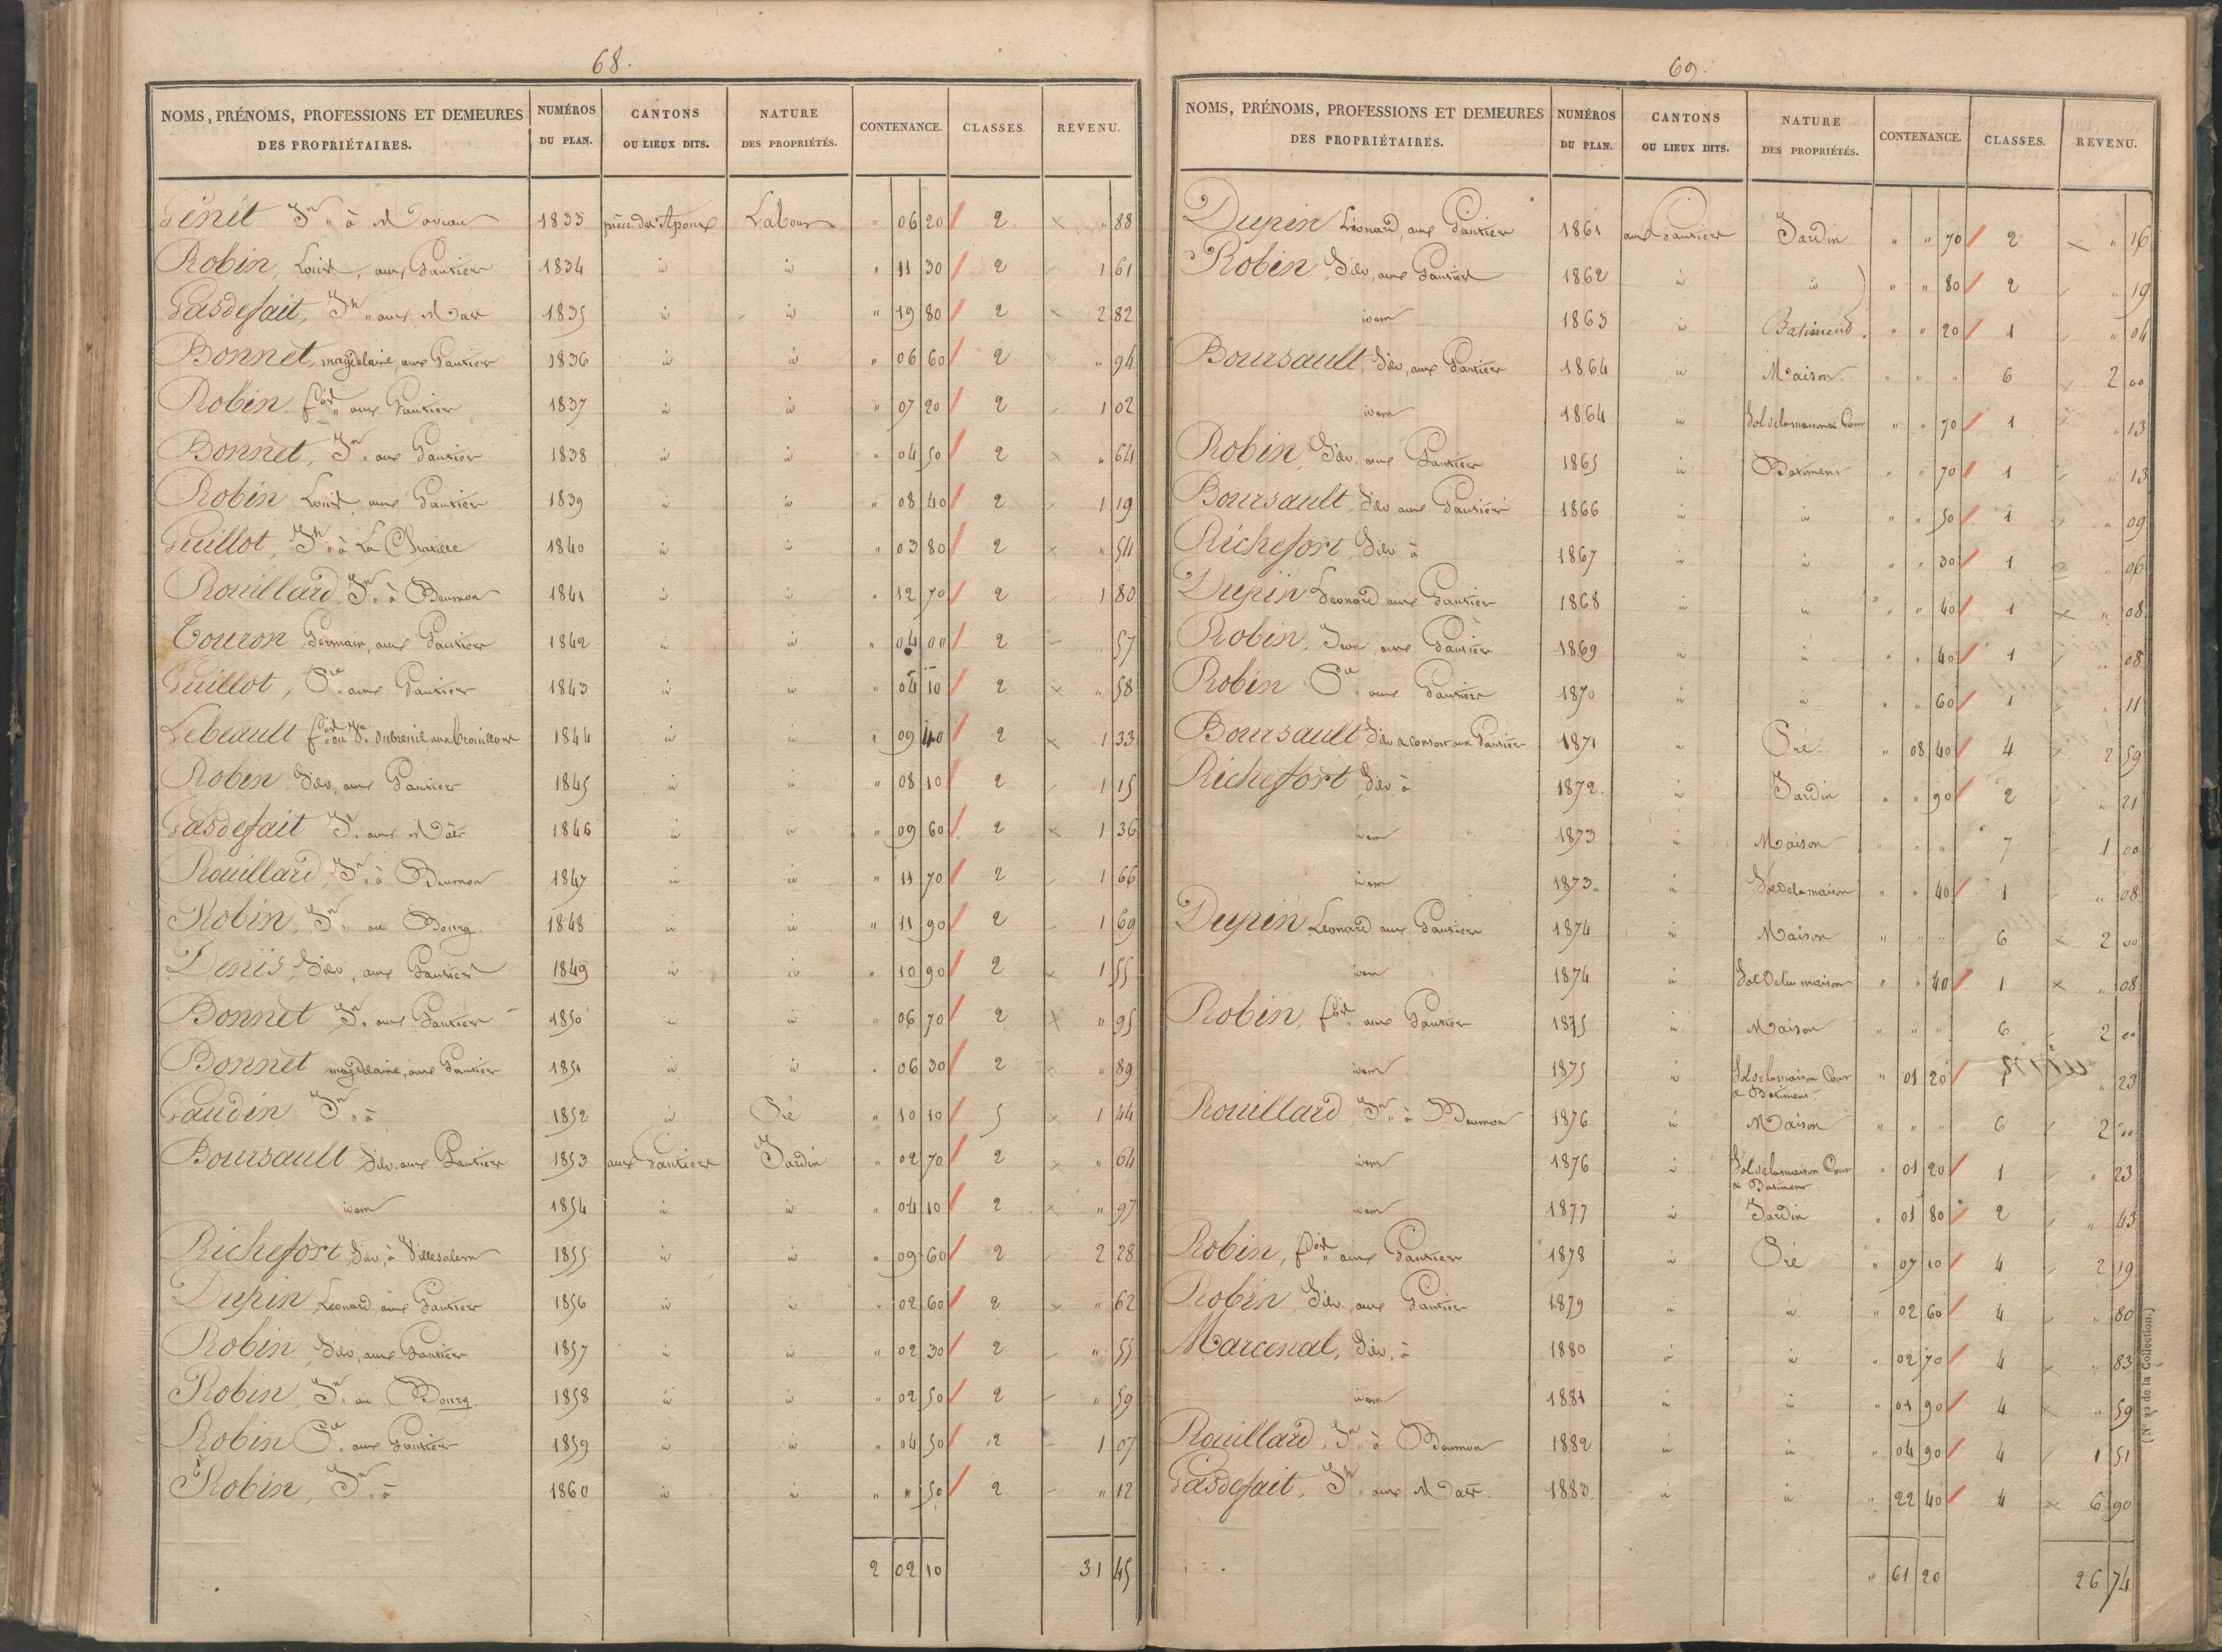 68.
NOMS, PRÉNOMS, PROFESSIONS ET DEMEURES DES PROPRIÉTAIRES. NUMÉROS DU PLAN. CANTONS OU LIEUX DITS. NATURE DES PROPRIÉTÉS. CONTENANCE. CLASSES. REVENU.
Génét Jn à 1833 pièce des Labour " 06 20 2 " 88
Robin, Louis, aux Gautier 1834 id id " 11 30 2 1 61
Pasdefait, Jh aux 1835 id id " 19 80 2 2 82
Bonnet, magdelaine, aux Gautier 1836 id id " 06 60 2 " 94
Robin. fçois aux Gautier 1837 id id " 07 20 2 1 02
Bonnet, Jn aux Gautier 1838 id id " 04 50 2 " 64
Robin Louis, aux Gautier 1839 id id " 08 40 2 1 19
Guillot, Jh à La 1840 id id " 03 80 2 " 54
Rouillard, Jn à Beumon 1841 id id " 12 70 2 1 80
Touron Germain, aux Gautier 1842 id id " 04 00 2 " 57
Guillot, Pre aux Gautier 1843 id id " 04 10 2 " 58
Lebeault fçois ou Ve Dubreuil aux brouillons 1844 id id " 09 40 2 1 33
Robin Silv, aux Gautier 1845 id id " 08 10 2 1 15
Pasdefait Jh aux 1846 id id " 09 60 2 1 36
Rouillard, Jn à Beumon 1847 id id " 11 70 2 1 66
Robin, Jn au Bourg 1848 id id " 11 90 2 1 69
Denis, Silv, aux Gautier 1849 id id " 10 90 2 1 55
Bonnet Jn aux Gautier 1850 id id " 06 70 2 " 95
Bonnet magdelaine, aux Gautier 1851 id id " 06 30 2 " 89
Gaudin Jn à 1852 id Pré " 10 10 5 1 44
Boursault Silv. aux Gautier 1853 aux Gautier Jardin " 02 70 2 " 64
idem 1854 id id " 04 10 2 " 97
Richefort Silv, à Villesalem 1855 id id " 09 60 2 2 28
Dupin Leonard, aux Gautier 1856 id id " 02 60 2 " 62
Robin, Silv, aux Gautier 1857 id id " 02 30 2 " 55
Robin, Jn au Bourg. 1858 id id " 02 50 2 " 59
Robin Pre aux Gautier 1859 id id " 04 50 2 1 07
Robin, Jn à 1860 id id " " 50 2 " 12
2 02 10 31 45
69.
NOMS, PRÉNOMS, PROFESSIONS ET DEMEURES DES PROPRIÉTAIRES. NUMÉROS DU PLAN. CANTONS OU LIEUX DITS. NATURE DES PROPRIÉTÉS. CONTENANCE. CLASSES. REVENU.
Dupin Léonard, aux Gautier 1861 aux Gautier Jardin " " 70 2 " 16
Robin, Silv, aux Gautier 1862 id id " " 80 2 " 19
idem 1863 id Batiment " " 20 1 " 04
Boursault, Silv, aux Gautier 1864 id Maison " " " 6 2 00
idem 1864 id Sol de la maison & Cour " " 70 1 " 13
Robin, Silv, aux Gautier 1865 id Batiment " " 70 1 " 13
Boursault, Silv, aux Gautier 1866 id id " " 50 1 " 09
Richefort, Silv à 1867 id id " " 30 1 " 06
Dupin Leonard aux Gautier 1868 id id " " 40 1 " 08
Robin, Jean, aux Gautier 1869 id id " " 40 1 " 08
Robin Pre aux Gautier 1870 id id " " 60 1 " 11
Boursault Silv & Consort aux Gautier 1871 id Pré " 08 40 4 2 59
Richefort Silv à 1872. id Jardin " " 90 2 " 21
idem 1873 id Maison " " " 7 1 00
idem 1873. id Sol de la maison " " 40 1 " 08
Dupin Leonard aux Gautier 1874 id Maison " " " 6 2 00
idem 1874 id Sol de la maison " " 40 1 " 08
Robin, fçois aux Gautier 1875 id Maison " " " 6 2 00
idem 1875 id Sol de la maison Cour & Batiment " 01 20 1 " 23
Rouillard Jn à Beumon 1876 id Maison " " " 6 2 00
idem 1876 id Sol de la maison Cour & Batiment " 01 20 1 " 23
idem 1877 id Jardin " 01 80 2 " 43
Robin, fçois aux Gautier 1878 id Pré " 07 10 4 2 19
Robin Silv, aux Gautier 1879 id id " 02 60 4 " 80
Marcenal, Silv, à 1880 id id " 02 70 4 " 83
idem 1881 id id " 01 90 4 " 59
Rouillard, Jn à Beumon 1882 id id " 04 90 4 1 51
Pasdefait, Jh aux 1883. id id " 22 40 4 6 90
" 61 20 26 74
(N° 22 de la Collection.)